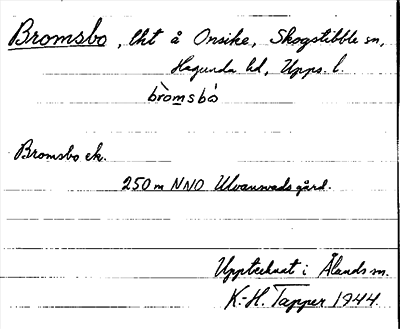 Bromsbo, lht å Onsike, Skogstibble sn,
Hagunda hd, Upps. l.
bròmsbó
Bromsbo ek.
250 m NNO Ulvansvads gård.
Upptecknat i Ålands sn.
K.-H. Tapper 1944.